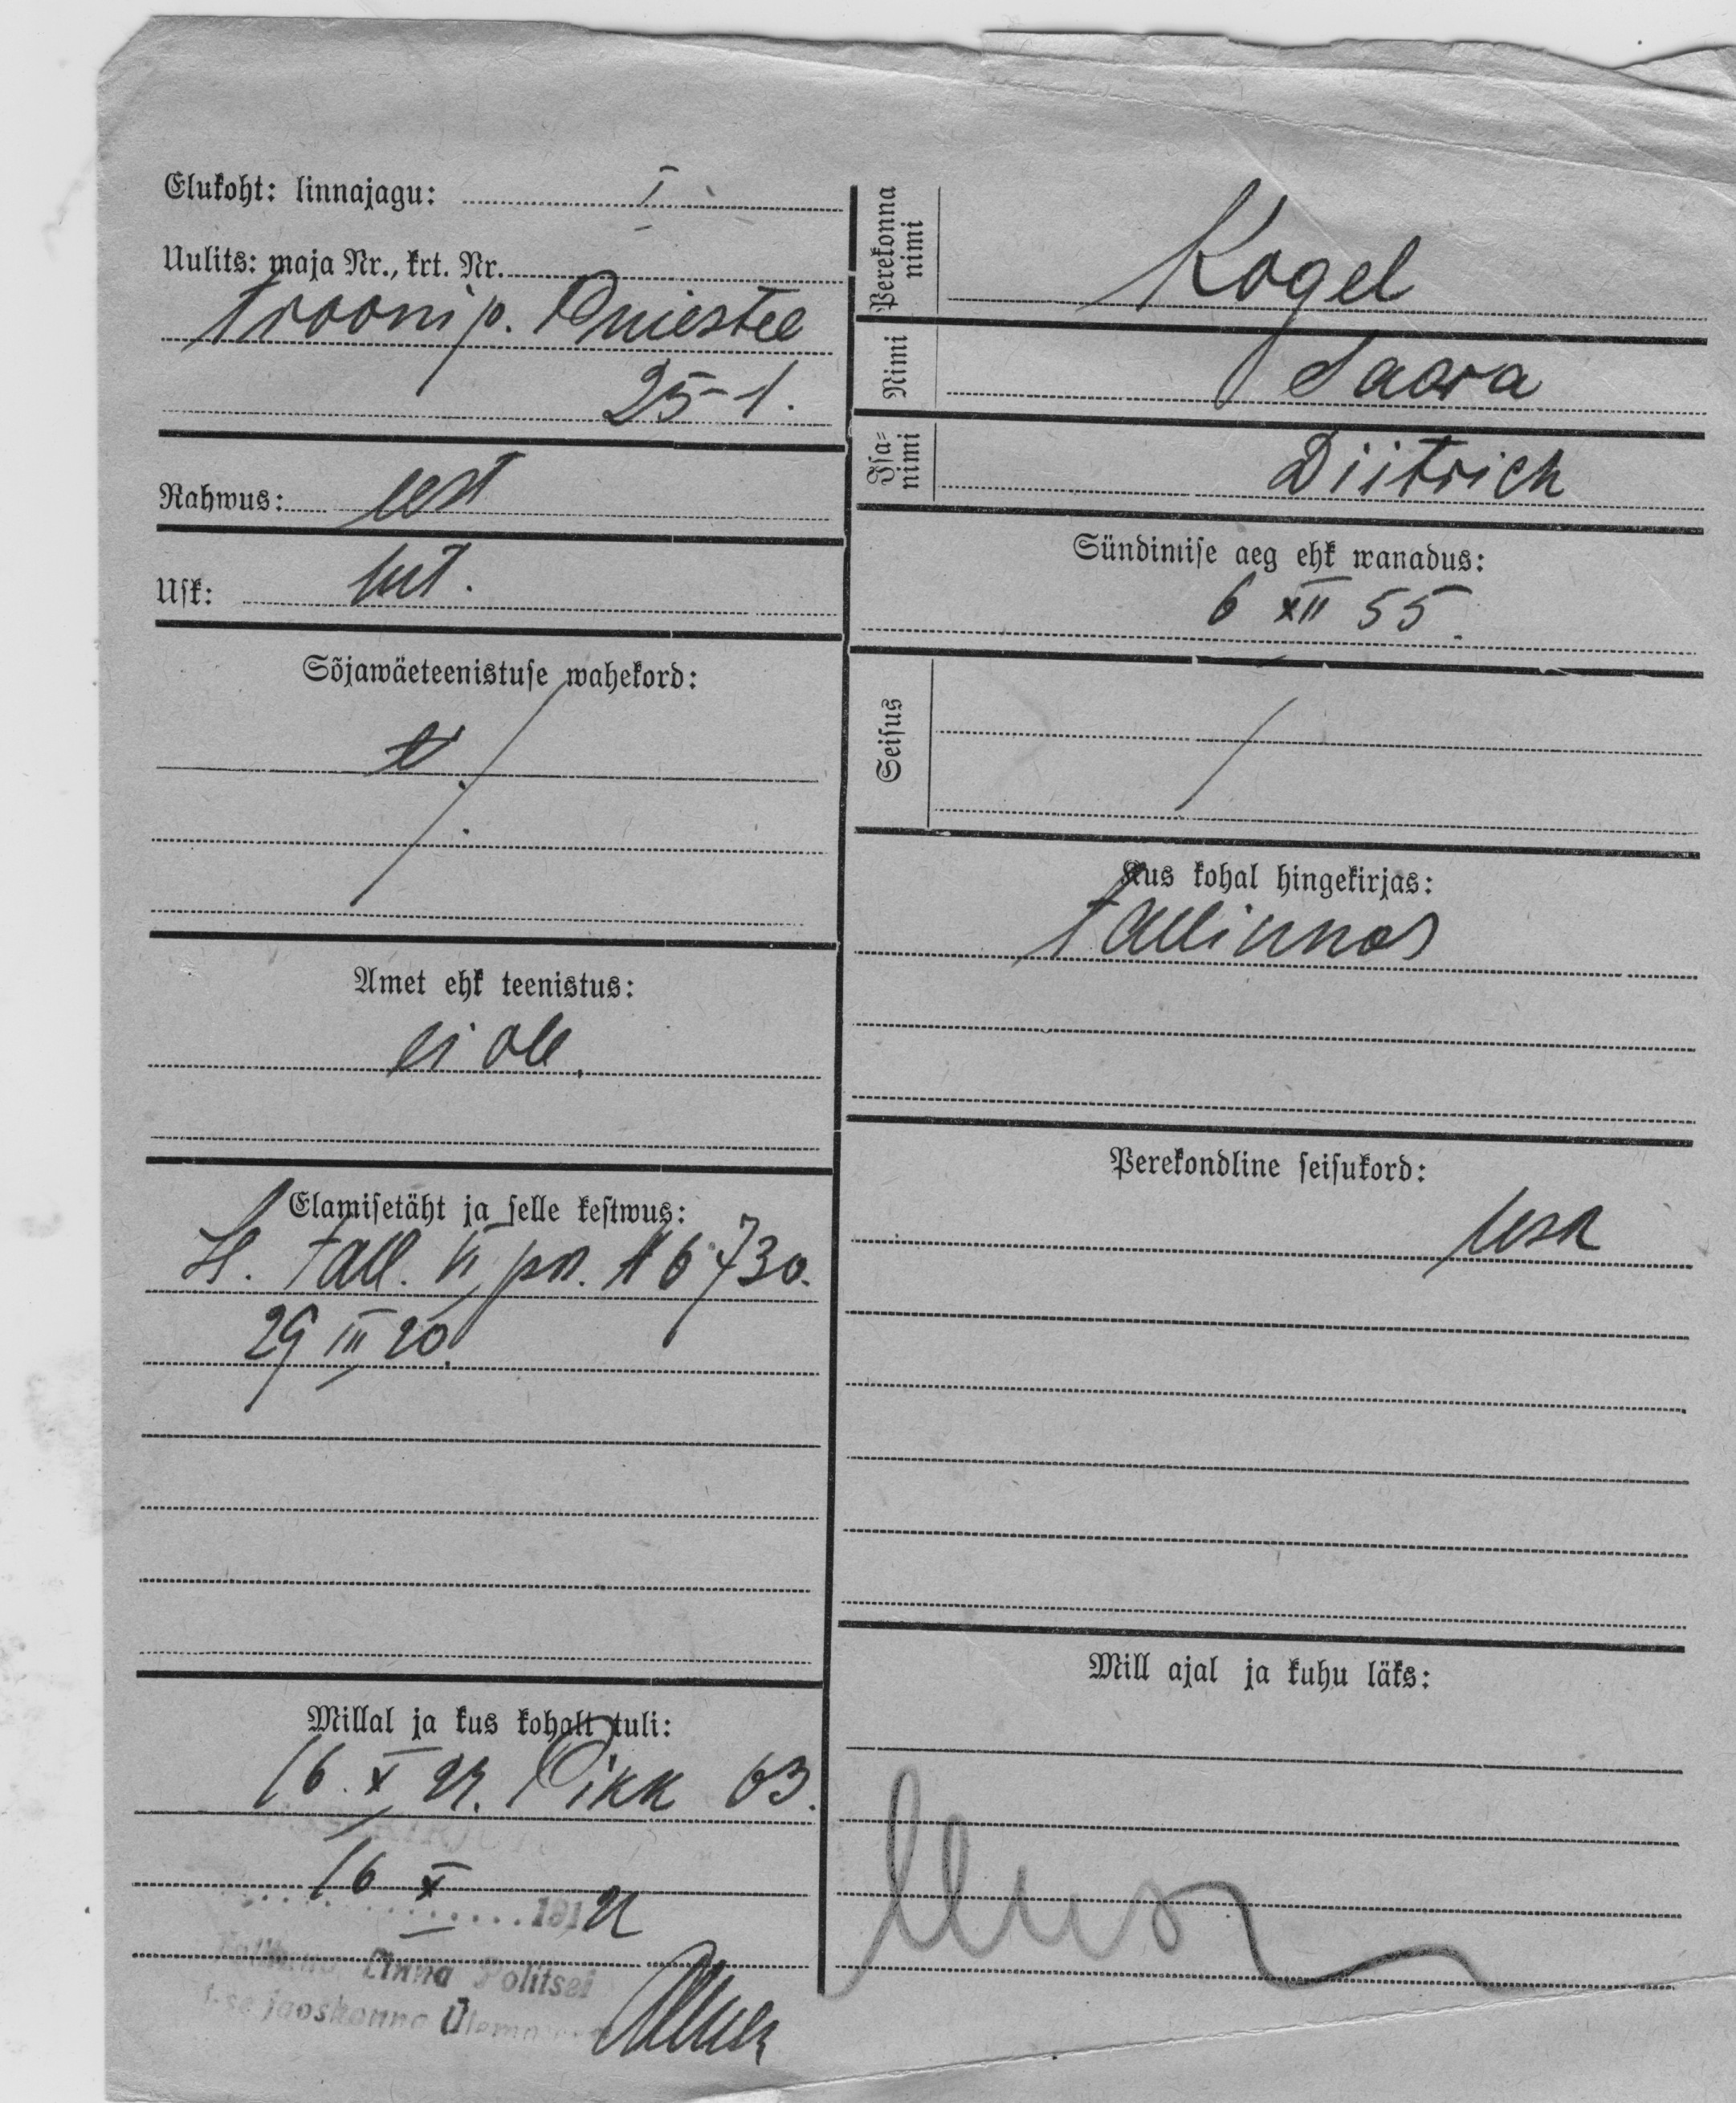 Elukoht: linnajagu: I
Uulits: maja Nr., krt. Nr.
Trooni p. Puiestee
25-1.
Rahwus: eest
Usk: lut.
Sõjawäeteenistuse wahekord:
Amet ehk teenistus:
ei ole.
Elamisetäht ja selle kestwus:
Tall. VI jsk. № 6730.
29 III 20.
Millal ja kus kohalt tuli:
16. X 21. Pikk 63.
16 X 191 21
Tallinna Linna Politsei
1-se jaoskonna Ülem
Perekonna nimi
Kogel
Nimi
Saara
Isa-nimi
Diitrich
Sündimise aeg ehk wanadus:
6 XII 55.
Seisus
Kus kohal hingekirjas:
Tallinnas
Perekondline seisukord:
lesk
Mill ajal ja kuhu läks: